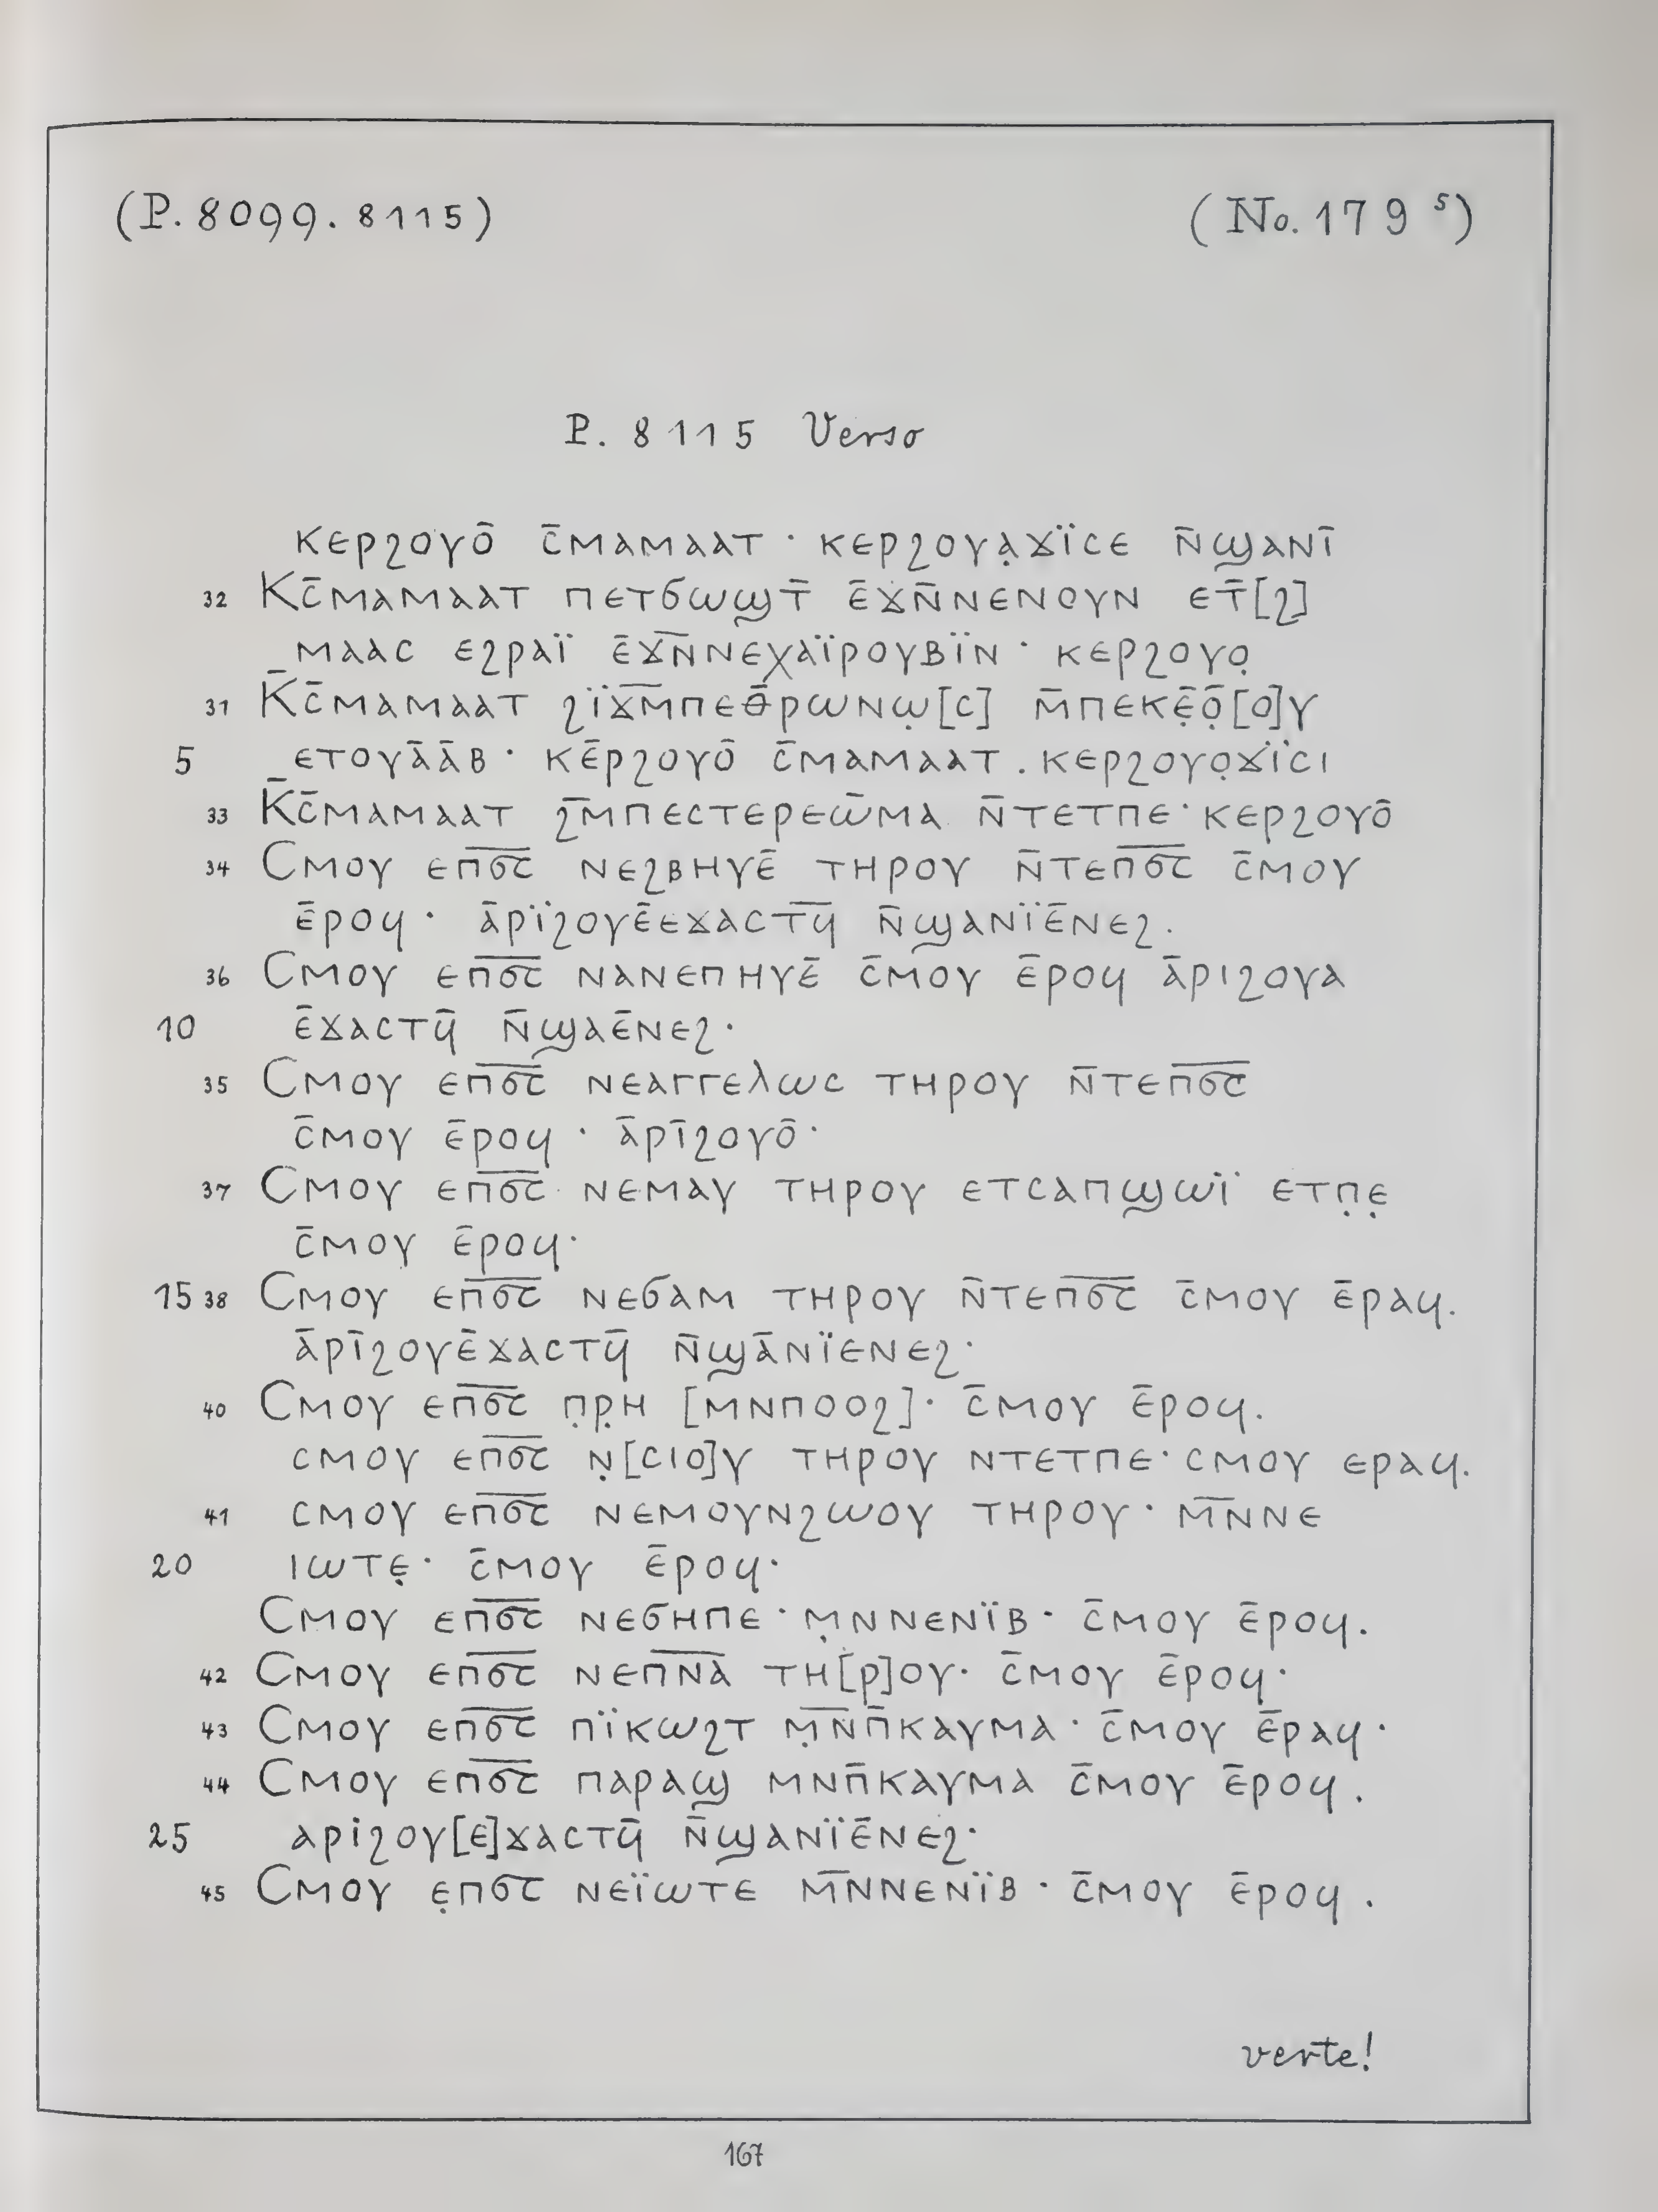 (P. 8099. 8115)
(No. 179 ⁵)
P. 8115 Verso
ⲕⲉⲣϩⲟⲩⲟ̄ ⲥ̄ⲙⲁⲙⲁⲁⲧ · ⲕⲉⲣϩⲟⲩⲁ̣ϫⲓ̈ⲥⲉ ⲛ̄ϣⲁⲛⲓ̄
32 Ⲕⲥ̄ⲙⲁⲙⲁⲁⲧ ⲡⲉⲧϭⲱϣⲧ̄ ⲉ̄ϫⲛ̄ⲛⲉⲛⲟⲩⲛ ⲉⲧ̄[ϩ]
ⲙⲁⲁⲥ ⲉϩⲣⲁⲓ̈ ⲉ̄ϫ̄ⲛ̄ⲛⲉⲭⲁⲓ̈ⲣⲟⲩⲃⲓ̈ⲛ · ⲕⲉⲣϩⲟⲩⲟ̣
31 Ⲕ̄ⲥ̄ⲙⲁⲙⲁⲁⲧ ϩⲓ̈ϫ̄ⲙ̄ⲡⲉⲑ̄ⲣⲱⲛⲱ̣[ⲥ] ⲙ̄ⲡⲉⲕⲉ̣̄ⲟ̣̄[ⲟ]ⲩ
5 ⲉⲧⲟⲩⲁ̄ⲁ̄ⲃ · ⲕⲉ̄ⲣϩⲟⲩⲟ̄ ⲥ̄ⲙⲁⲙⲁⲁⲧ . ⲕⲉⲣϩⲟⲩⲟ̣ϫⲓ̈ⲥⲓ
33 Ⲕ̄ⲥ̄ⲙⲁⲙⲁⲁⲧ ϩ̄ⲙ̄ⲡⲉⲥⲧⲉⲣⲉⲱ̄ⲙⲁ ⲛ̄ⲧⲉⲧⲡⲉ · ⲕⲉⲣϩⲟⲩⲟ̄
34 Ⲥⲙⲟⲩ ⲉⲡ̅ϭ̅ⲥ̅ ⲛⲉϩⲃⲏⲩⲉ̄ ⲧⲏⲣⲟⲩ ⲛ̄ⲧⲉⲡ̅ϭ̅ⲥ̅ ⲥ̄ⲙⲟⲩ
ⲉ̄ⲣⲟϥ · ⲁ̄ⲣⲓ̈ϩⲟⲩⲉ̄ⲉϫⲁⲥⲧ̅ϥ̅ ⲛ̄ϣⲁⲛⲓ̈ⲉ̄ⲛⲉϩ .
36 Ⲥⲙⲟⲩ ⲉⲡ̅ϭ̅ⲥ̅ ⲛⲁⲛⲉⲡⲏⲩⲉ̄ ⲥ̄ⲙⲟⲩ ⲉ̄ⲣⲟϥ ⲁ̄ⲣⲓϩⲟⲩⲁ
10 ⲉ̄ϫⲁⲥⲧϥ̄ ⲛ̄ϣⲁⲉ̄ⲛⲉϩ ·
35 Ⲥⲙⲟⲩ ⲉⲡ̅ϭ̅ⲥ̅ ⲛⲉⲁⲅⲅⲉⲗⲱⲥ ⲧⲏⲣⲟⲩ ⲛ̄ⲧⲉⲡ̅ϭ̅ⲥ̅
ⲥ̄ⲙⲟⲩ ⲉ̄ⲣⲟϥ · ⲁ̄ⲣⲓ̄ϩⲟⲩⲟ̄ ·
37 Ⲥⲙⲟⲩ ⲉⲡ̅ϭ̅ⲥ̅ ⲛⲉⲙⲁⲩ ⲧⲏⲣⲟⲩ ⲉⲧⲥⲁⲡϣⲱⲓ̈ ⲉⲧⲡ̣ⲉ̣
ⲥ̄ⲙⲟⲩ ⲉ̄ⲣⲟϥ ·
15 38 Ⲥⲙⲟⲩ ⲉⲡ̅ϭ̅ⲥ̅ ⲛⲉϭⲁⲙ ⲧⲏⲣⲟⲩ ⲛ̄ⲧⲉⲡ̅ϭ̅ⲥ̅ ⲥ̄ⲙⲟⲩ ⲉ̄ⲣⲁϥ .
ⲁ̄ⲣⲓ̄ϩⲟⲩⲉ̄ϫⲁⲥⲧϥ̄ ⲛ̄ϣⲁ̄ⲛⲓ̈ⲉⲛⲉϩ ·
40 Ⲥⲙⲟⲩ ⲉⲡ̅ϭ̅ⲥ̅ ⲡ̣ⲣ̣ⲏ [ⲙⲛⲡⲟⲟϩ] · ⲥ̄ⲙⲟⲩ ⲉ̄ⲣⲟϥ .
ⲥⲙⲟⲩ ⲉⲡ̅ϭ̅ⲥ̅ ⲛ̣[ⲥⲓⲟ]ⲩ ⲧⲏⲣⲟⲩ ⲛⲧⲉⲧⲡⲉ · ⲥⲙⲟⲩ ⲉⲣⲁϥ .
41 ⲥⲙⲟⲩ ⲉⲡ̅ϭ̅ⲥ̅ ⲛⲉⲙⲟⲩⲛϩⲱⲟⲩ ⲧⲏⲣⲟⲩ · ⲙ̅ⲛ̅ⲛⲉ
20 ⲓⲱⲧⲉ̣ · ⲥ̄ⲙⲟⲩ ⲉ̄ⲣⲟϥ ·
Ⲥⲙⲟⲩ ⲉⲡ̅ϭ̅ⲥ̅ ⲛⲉϭⲏⲡⲉ · ⲙ̣ⲛⲛⲉⲛⲓ̈ⲃ · ⲥ̄ⲙⲟⲩ ⲉ̄ⲣⲟϥ .
42 Ⲥⲙⲟⲩ ⲉⲡ̅ϭ̅ⲥ̅ ⲛⲉⲡ̅ⲛ̅ⲁ̅ ⲧⲏ[ⲣ]ⲟⲩ · ⲥ̄ⲙⲟⲩ ⲉ̄ⲣⲟϥ ·
43 Ⲥⲙⲟⲩ ⲉⲡ̅ϭ̅ⲥ̅ ⲡⲓ̈ⲕⲱϩⲧ ⲙ̣̅ⲛ̅ⲡ̄ⲕⲁⲩⲙⲁ · ⲥ̄ⲙⲟⲩ ⲉ̄ⲣⲁϥ ·
44 Ⲥⲙⲟⲩ ⲉⲡ̅ϭ̅ⲥ̅ ⲡⲁⲣⲁϣ ⲙⲛⲡ̄ⲕⲁⲩⲙⲁ ⲥ̄ⲙⲟⲩ ⲉ̄ⲣⲟϥ .
25 ⲁⲣⲓϩⲟⲩ[ⲉ]ϫⲁⲥⲧϥ̄ ⲛ̄ϣⲁⲛⲓ̈ⲉ̄ⲛⲉϩ ·
45 Ⲥⲙⲟⲩ ⲉ̣ⲡϭ̅ⲥ̅ ⲛⲉⲓ̈ⲱⲧⲉ ⲙ̅ⲛ̅ⲛⲉⲛⲓ̈ⲃ · ⲥ̄ⲙⲟⲩ ⲉ̄ⲣⲟϥ .
verte!
167